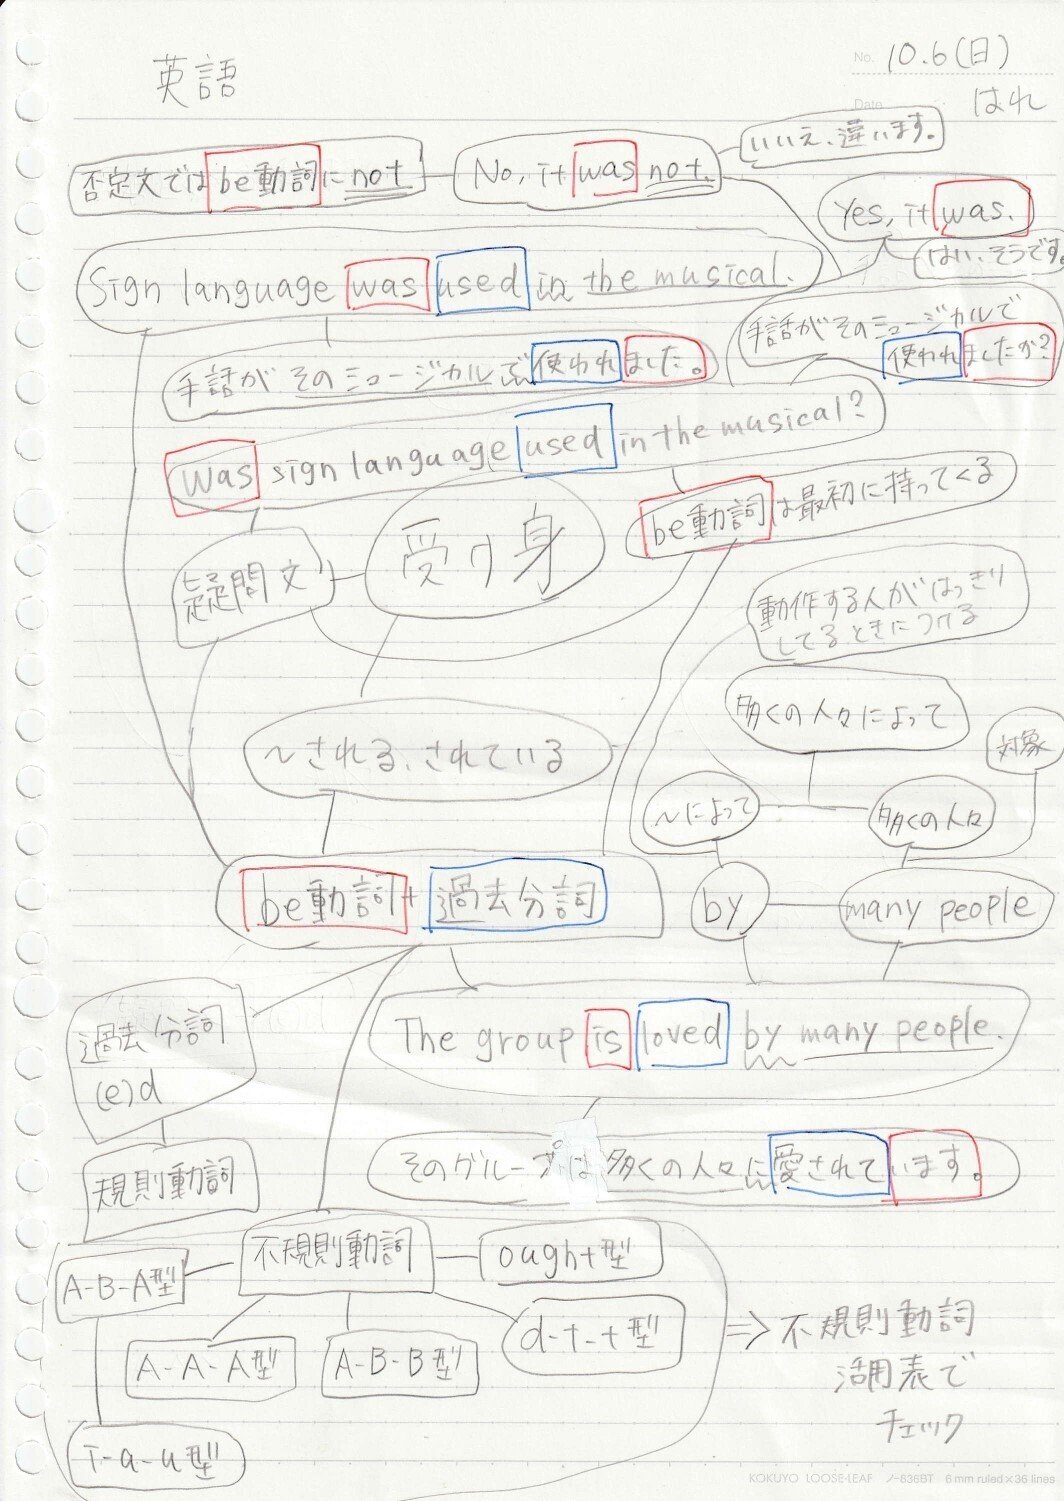 英語
No. 10.6(日)
Date はれ
否定文ではbe動詞にnot
No, it was not.
いいえ、違います。
Yes, it was.
はい、そうです。
Sign language was used in the musical.
手話がそのミュージカルで使われました。
手話がそのミュージカルで
使われましたか?
was sign language used in the musical?
be動詞は最初に持ってくる
疑問文
受け身
動作する人がはっきり
してるときにつける
~される、されている
多くの人々によって
対象
~によって
多くの人々
be動詞+過去分詞
by
many people
過去分詞
(e)d
The group is loved by many people.
規則動詞
そのグループは多くの人々に愛されています。
A-B-A型
不規則動詞
ought型
A-A-A型
A-B-B型
d-t-t型
i-a-u型
⇒不規則動詞
活用表で
チェック
KOKUYO LOOSE-LEAF ノ-836BT 6 mm ruled×36 lines